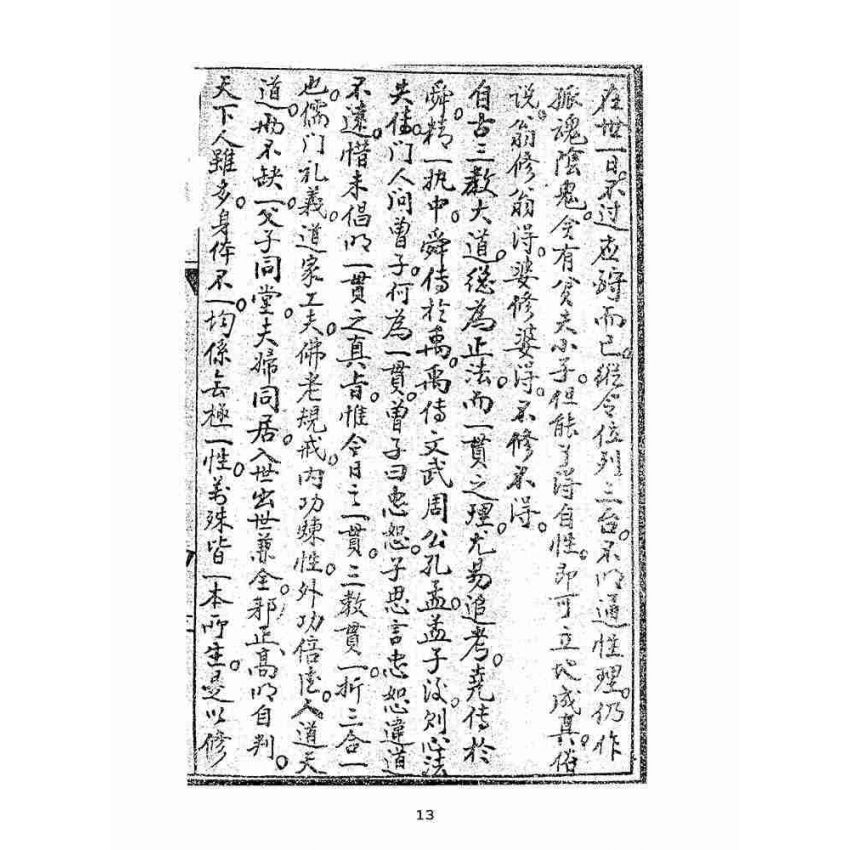 在世一日。不过应酬而已。縱令位列三台。不明通性理。仍作
孤魂陰鬼。会有貧夫小子。但能了得自性。即可立地成真。俗
说。翁修翁得。婆修婆得。不修不得。
自古三教大道。総為正法。而一貫之理。尤易追考。堯傳於
舜。精一执中。舜傳於禹。禹傳文武周公孔孟。孟子没則心法
失傳。门人问曽子。何為一貫。曽子曰忠恕。子思言忠恕違道
不遠。惜未倡明一貫之真旨。惟今日之一貫。三教貫一。折三合一
也。儒门礼義。道家工夫。佛老規戒。内功煉性。外功倍德。人道天
道。毋不缺一。父子同堂。夫婦同居。入世出世兼全。邪正高明自判。
天下人雖多。身体不一。均係無極一性。萬殊皆一本所生。是以修
13